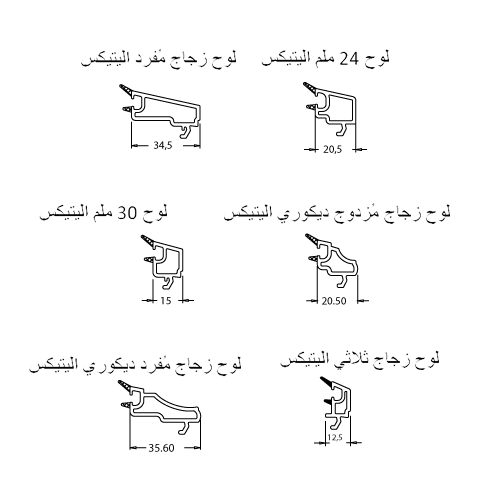 لوح 24 ملم اليتيكس
لوح زجاج مُفرد اليتيكس
20,5
34,5
لوح زجاج مُزدوج ديكوري اليتيكس
لوح 30 ملم اليتيكس
20.50
15
لوح زجاج ثلاثي اليتيكس
لوح زجاج مُفرد ديكوري اليتيكس
12,5
35.60